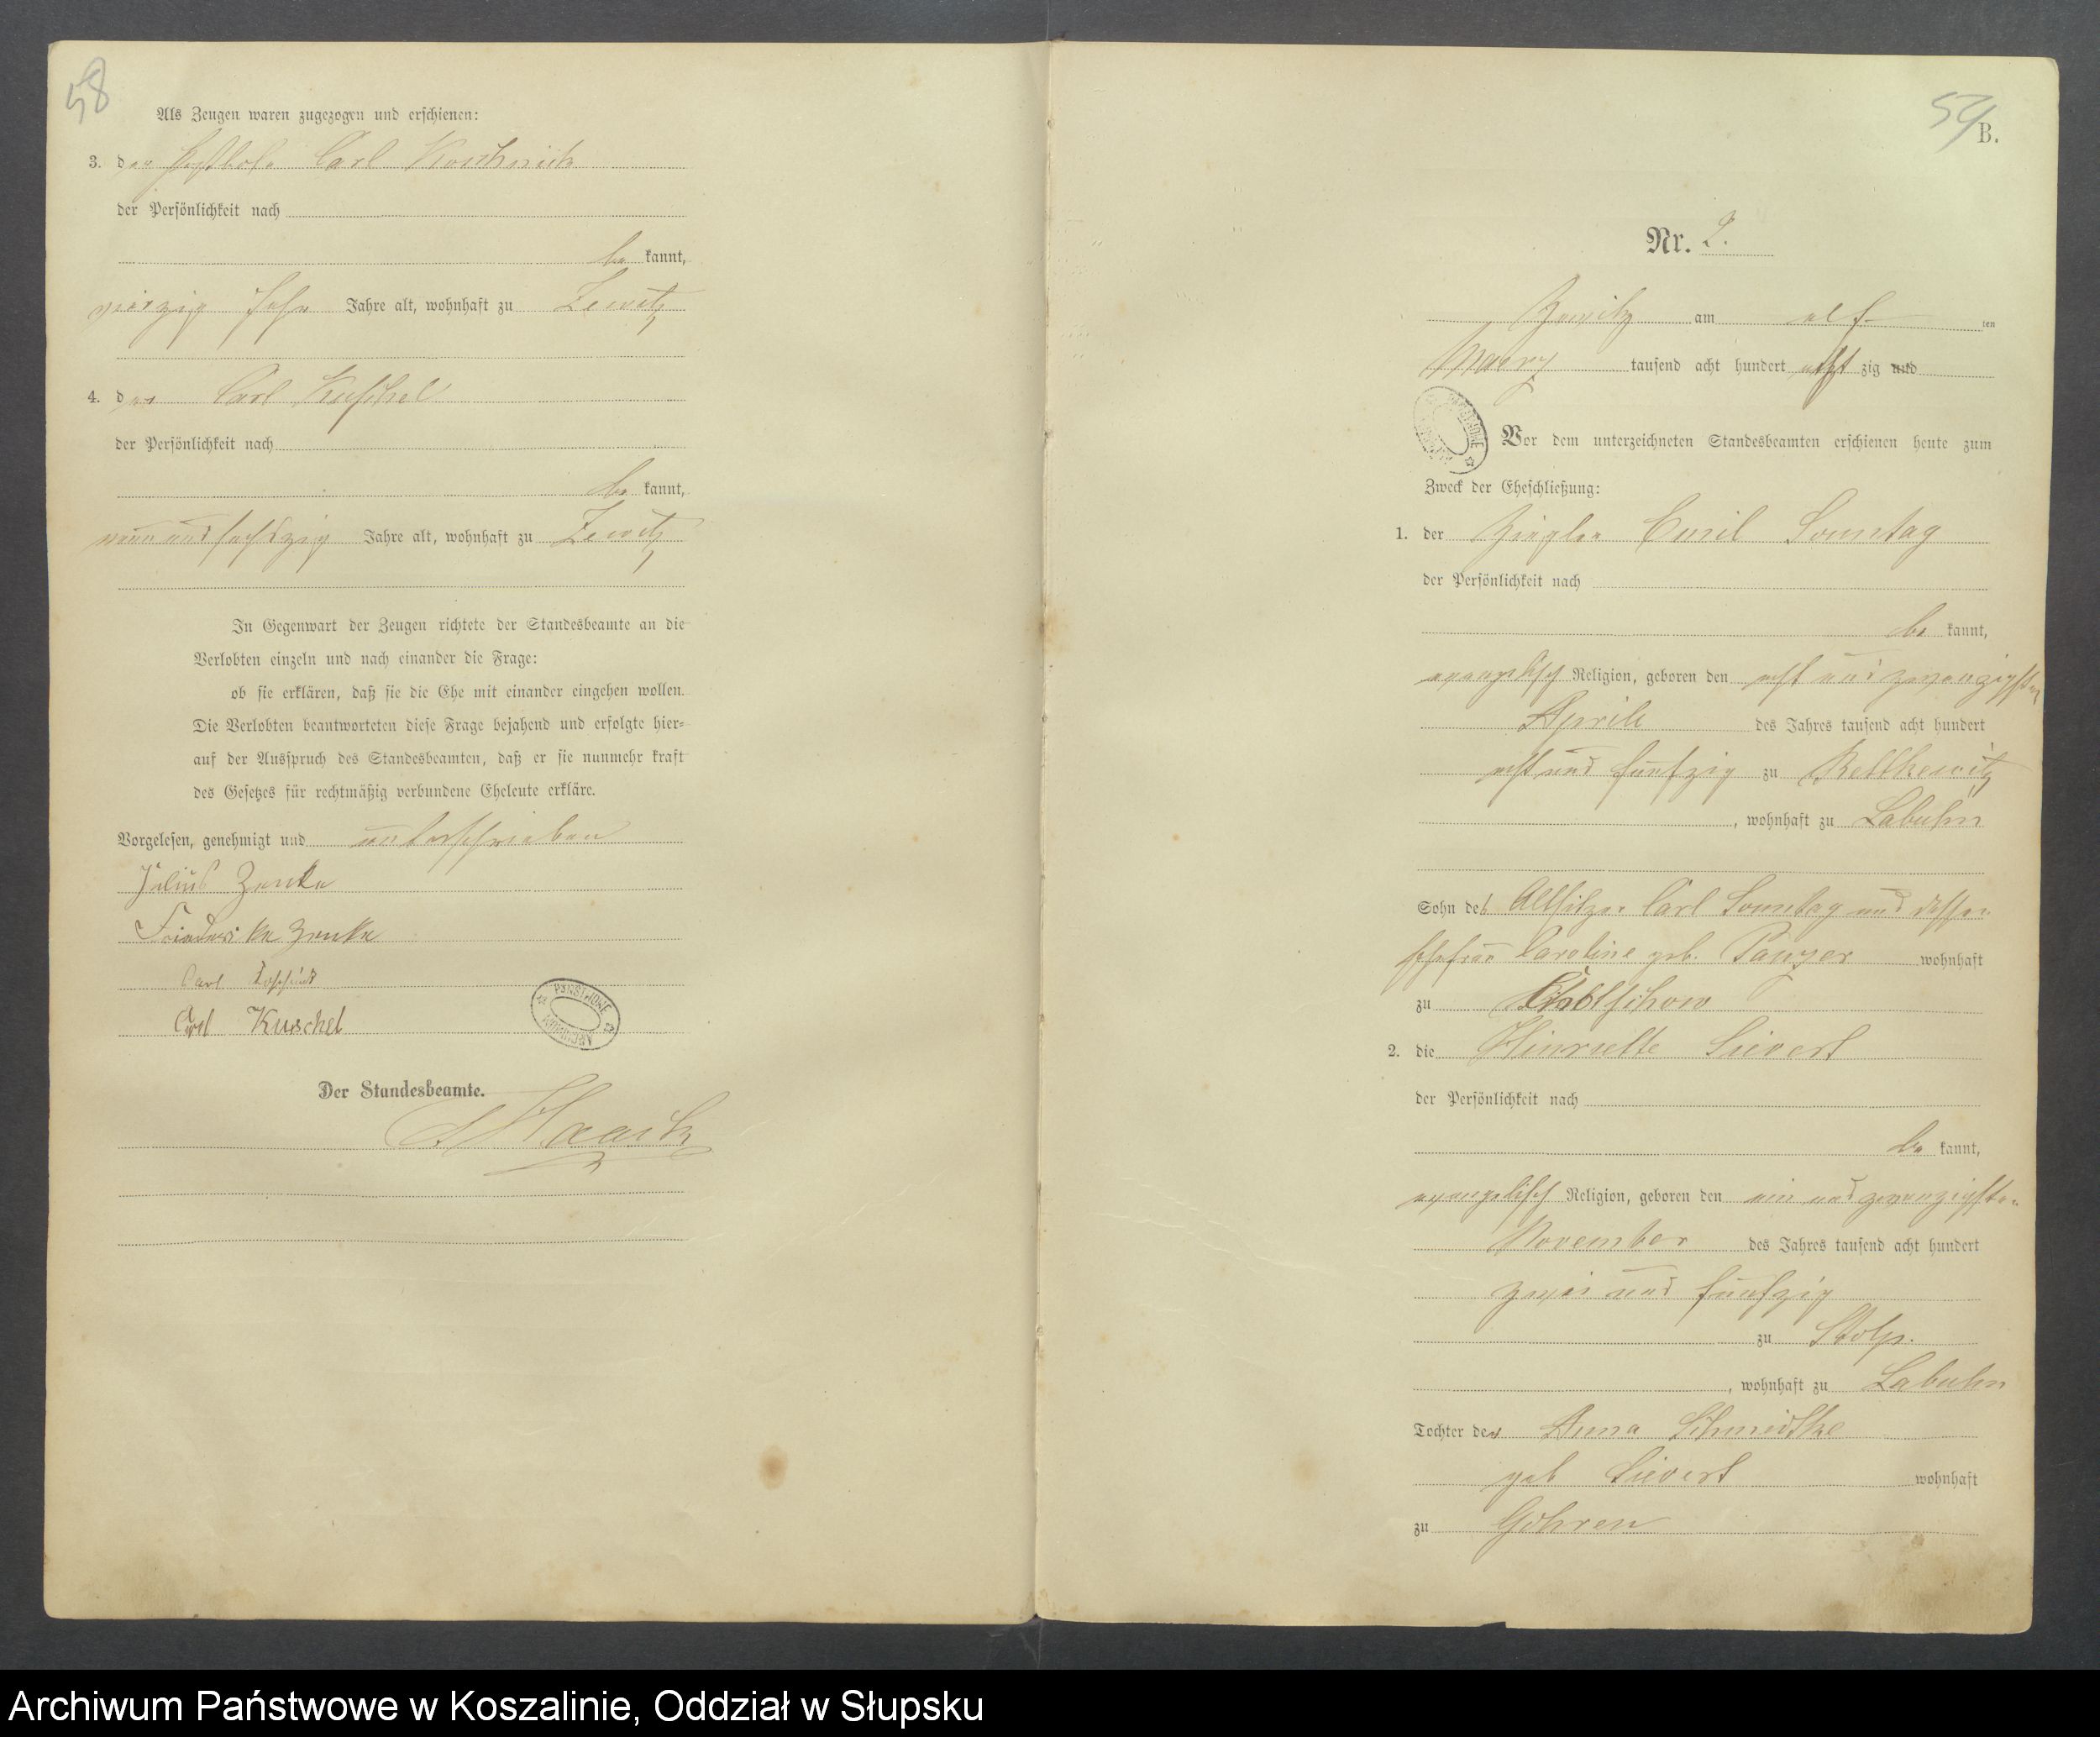 58
Als Zeugen waren zugezogen und erschienen:
3. der Postbote Carl Koschnick
der Persönlichkeit nach
be kannt,
vierzig Jahre alt, wohnhaft zu Zewitz
4. der Carl Kuschel
der Persönlichkeit nach
be kannt,
neun und sechszig Jahre alt, wohnhaft zu Zewitz
In Gegenwart der Zeugen richtete der Standesbeamte an die
Verlobten einzeln und nach einander die Frage:
ob sie erklären, daß sie die Ehe mit einander eingehen wollen.
Die Verlobten beantworteten diese Frage bejahend und erfolgte hier=
auf der Ausspruch des Standesbeamten, daß er sie nunmehr kraft
des Gesetzes für rechtmäßig verbundene Eheleute erkläre.
Vorgelesen, genehmigt und unterschrieben
Julius Zenke
Friederike Zenke
Carl
Carl Kuschel
PAŃSTWOWE ARCHIWUM
Der Standesbeamte.
Haack
59
B.
Nr. 2.
Zewitz am elf ten
Maerz tausend acht hundert acht zig und
Vor dem unterzeichneten Standesbeamten erschienen heute zum
Zweck der Eheschließung:
1. der Ziegler Emil Sonntag
der Persönlichkeit nach
be kannt,
evangelisch Religion, geboren den acht und zwanzigsten
Aprile des Jahres tausend acht hundert
acht und fünfzig zu Rettkewitz
, wohnhaft zu Labuhn
Sohn des Altsitzer Carl Sonntag und dessen
Ehefrau Caroline geb. Panzer wohnhaft
zu
2. die Hinriette Sievert
der Persönlichkeit nach
be kannt,
evangelisch Religion, geboren den ein und zwanzigsten
November des Jahres tausend acht hundert
zwei und fünfzig
zu Stolp.
, wohnhaft zu Labuhn
Tochter der Anna Schmidtke
geb Sievert wohnhaft
zu Göhren
Archiwum Państwowe w Koszalinie, Oddział w Słupsku